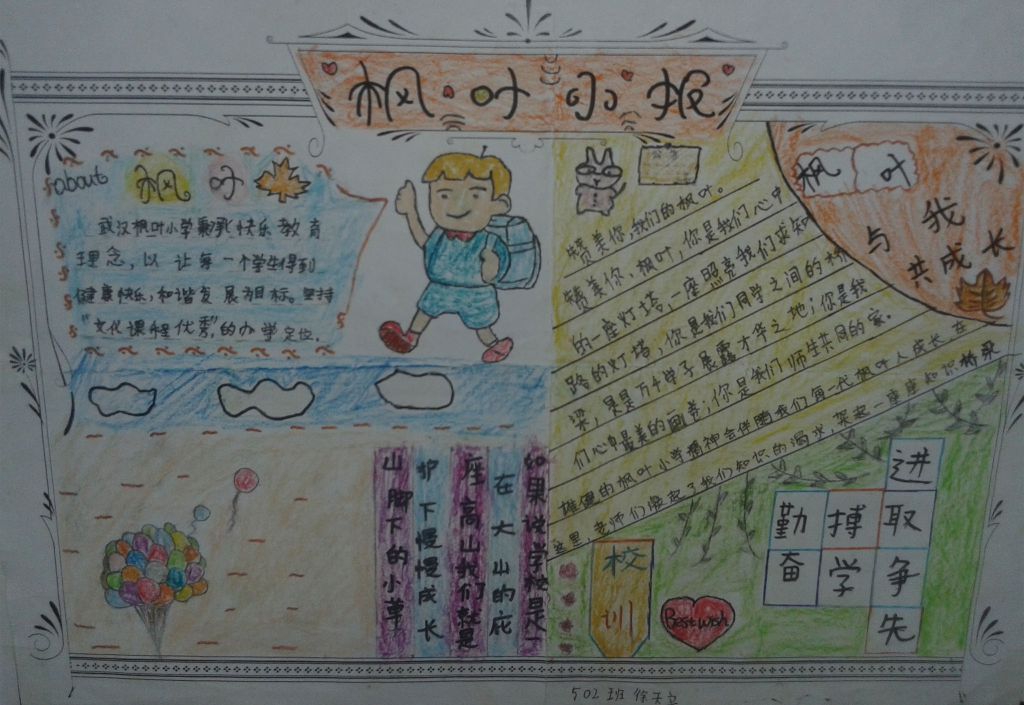 枫叶小报
about 枫叶
武汉枫叶小学秉承快乐教育
理念,以让每一个学生得到
健康快乐,和谐发展为目标。坚持
"文化课程优秀"的办学定位.
赞美你,我们的枫叶。
赞美你,枫叶,你是我们心中
的一座灯塔,一座照亮我们求知
路的灯塔,你是我们同学之间的桥
梁,是是万千学子展露才华之地;你是我
们心中最美的画卷;你是我们师生共同的家。
雄健的枫叶小学精神会伴随我们每一代枫叶人成长,在
这里,老师们激起了我们知识的渴求,架起一座座知识桥梁
枫叶
与我
共成长
如果说学校是一
座高山我们就是
在大山的庇
护下慢慢成长
山脚下的小草
校训
Best wish
勤奋
搏学
进取争先
502班